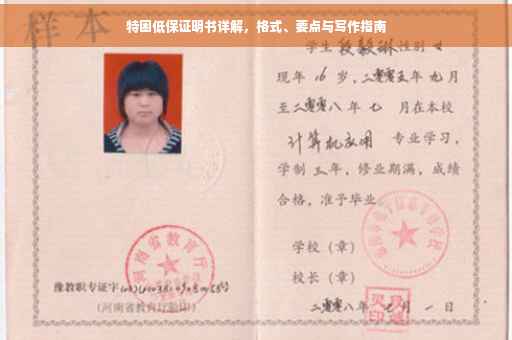 特困低保证明书详解，格式、要点与写作指南
样本
学生段毅琳性别女
现年16岁，二零零五年九月
至二零零八年七月在本校
计算机应用 专业学习，
学制三年，修业期满，成绩
合格，准予毕业
学校（章）
校长（章）
二零零八年七月一日
河南省教育厅
豫教职专证字
（河南省教育厅验印）